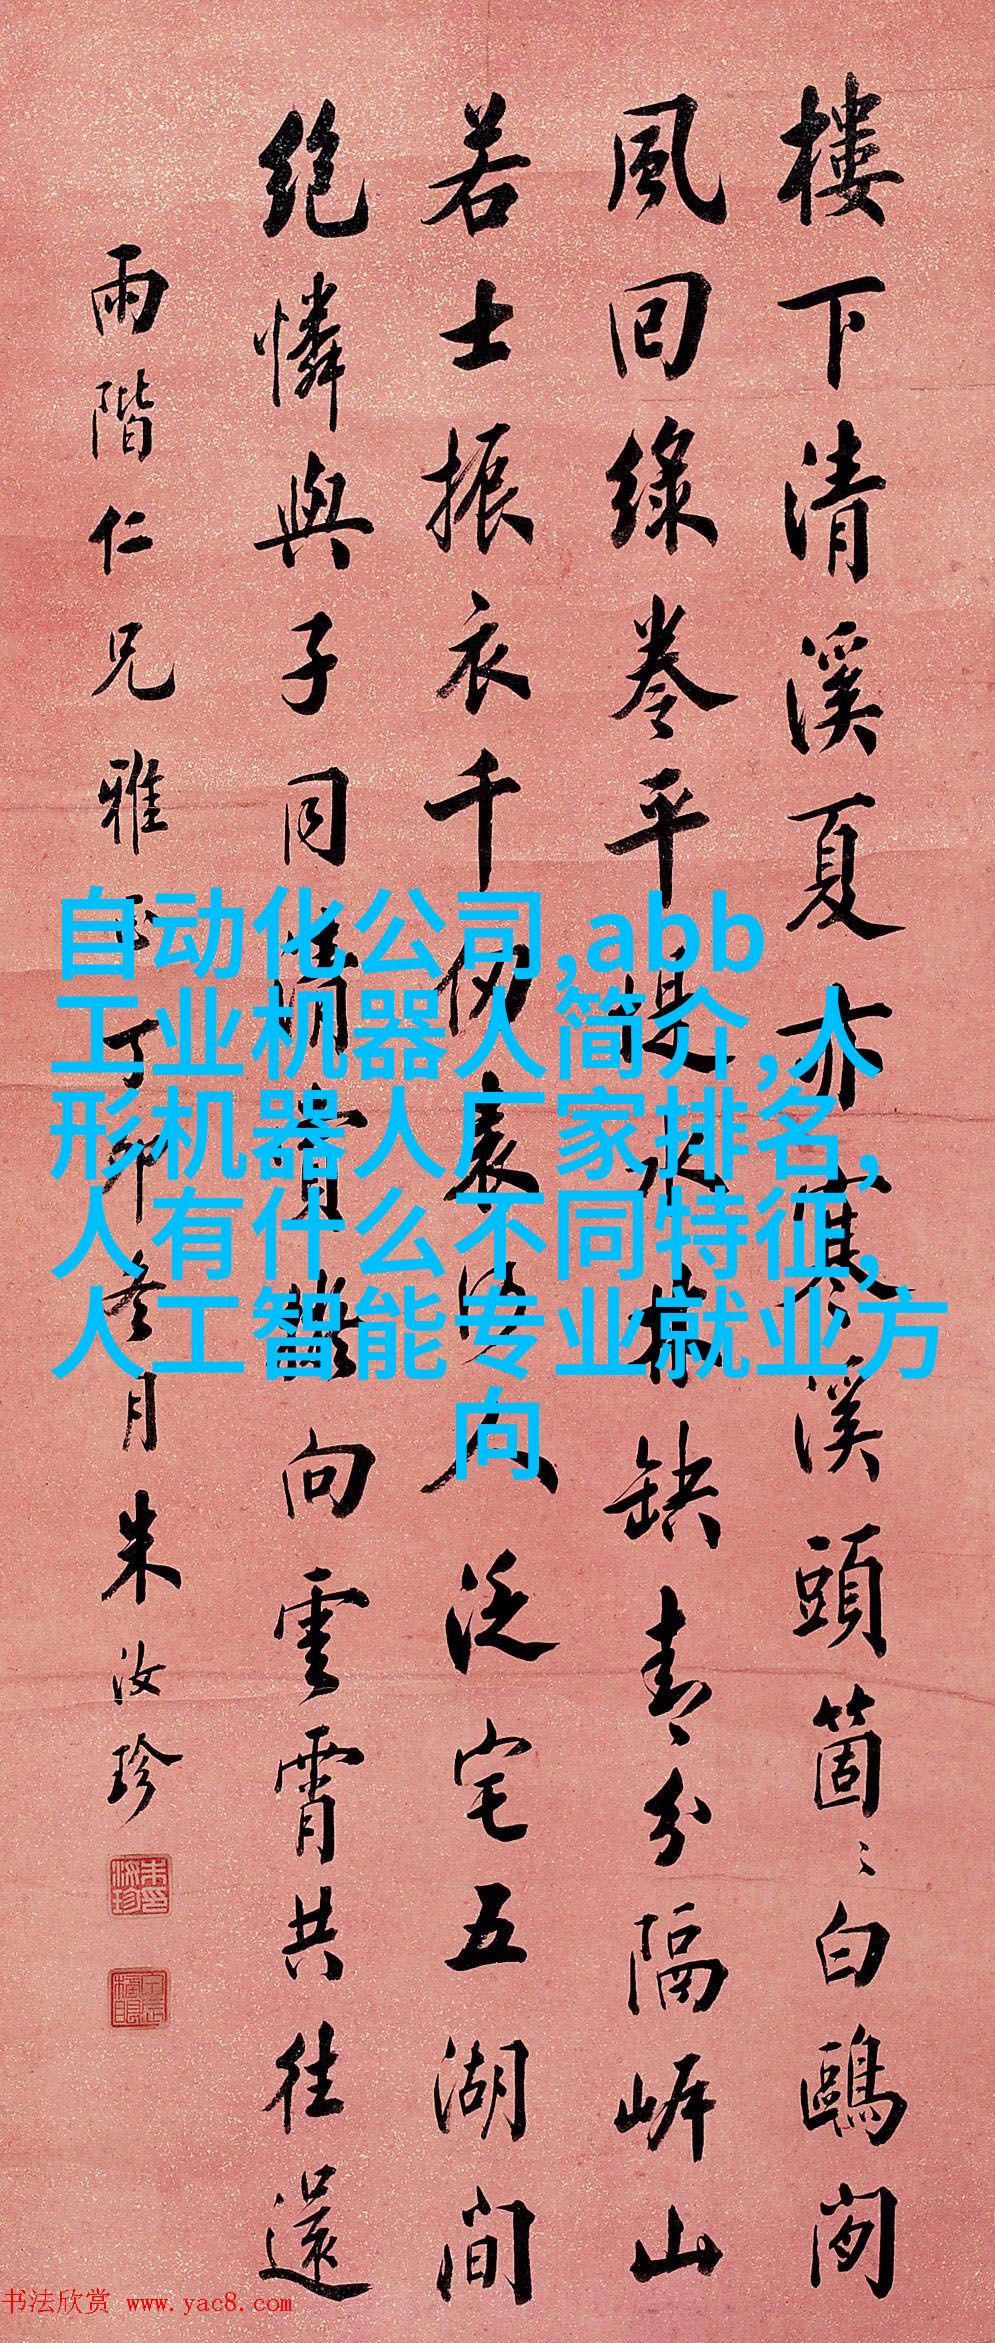 樓下清溪夏亦寒溪頭箇箇白鷗閒
風回綠卷平堤水樹缺青分隔岸山
若士振衣千仞表何人泛宅五湖間
絶憐與子同清賞擬向雲霄共往還
雨階仁兄雅丁卯冬月朱汝珍
朱汝珍
自动化公司,abb
工业机器人简介,人
形机器人厂家排名,
人有什么不同特征,
人工智能专业就业方
向
书法欣赏 www.yac8.com